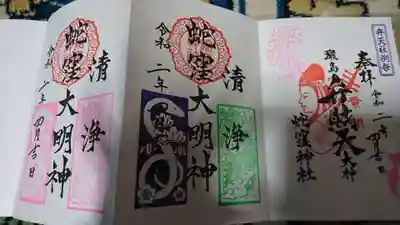 弁天社例祭
奉拝
令和二年
四月吉日
厳島弁財天
蛇窪神社
清浄
蛇窪大明神
令和二年
清浄
蛇窪大明神
令和二年
四月吉日